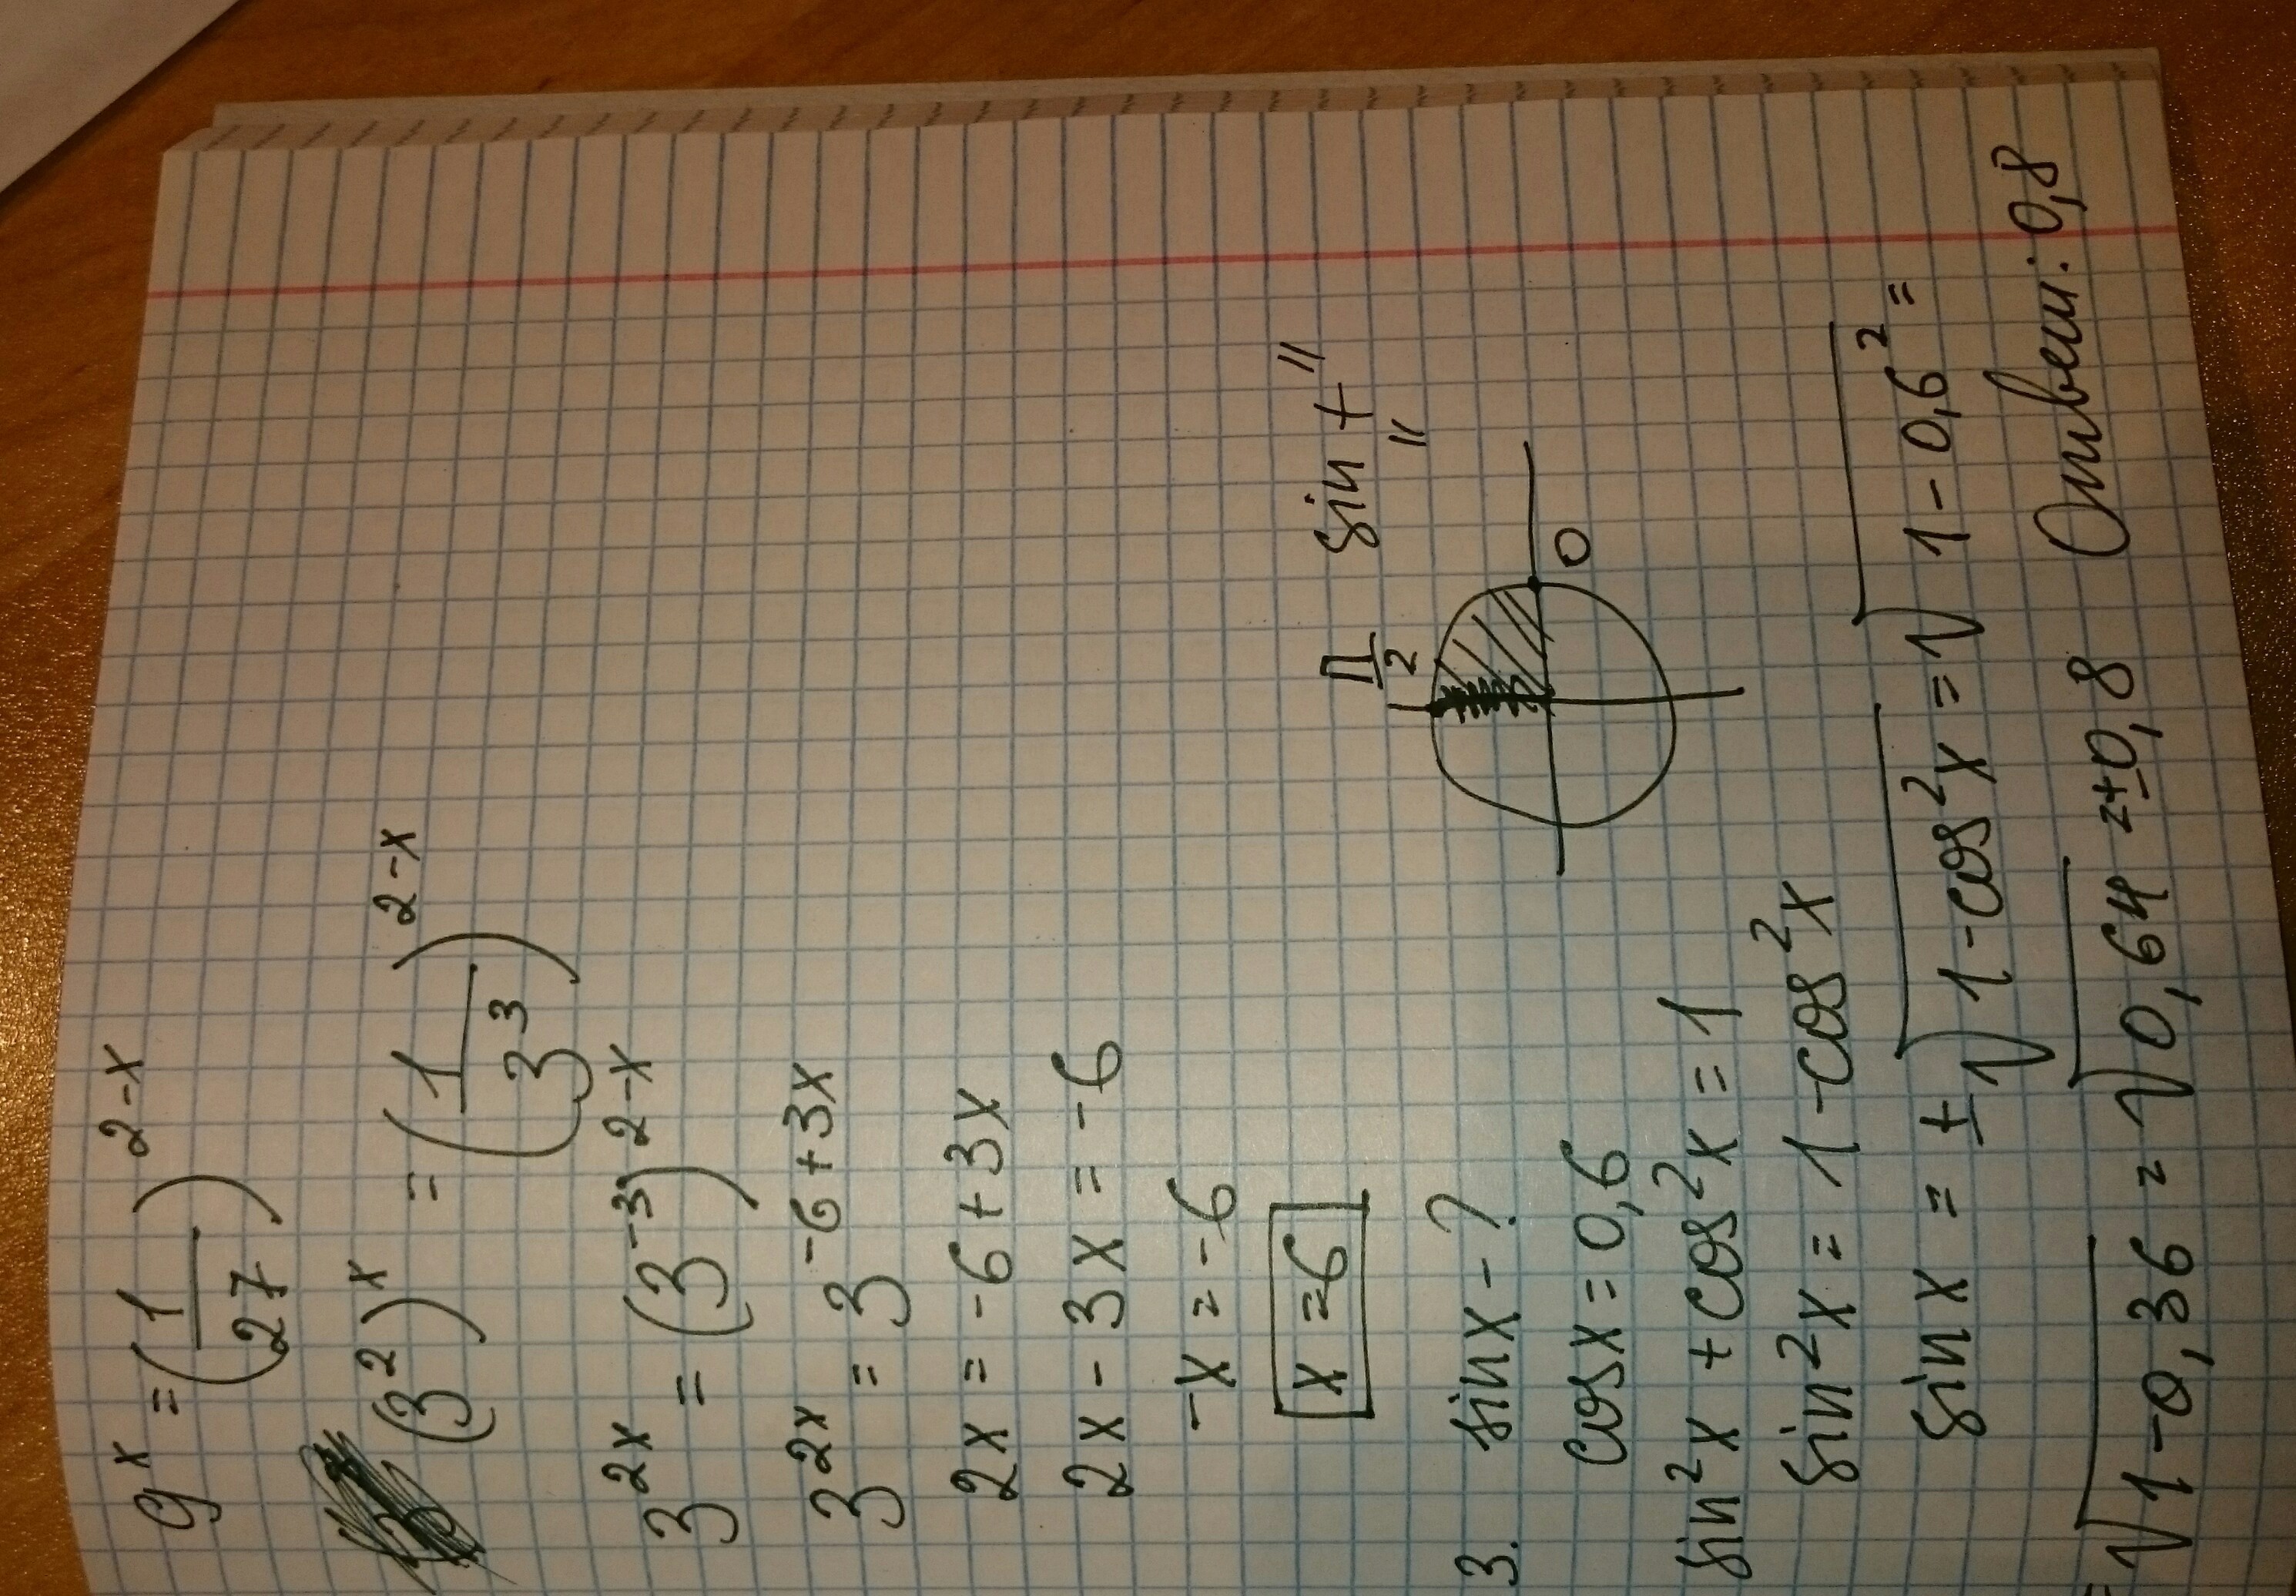 9^x = (1/27)^(2-x)
(3^2)^x = (1/3^3)^(2-x)
3^(2x) = (3^(-3))^(2-x)
3^(2x) = 3^(-6+3x)
2x = -6+3x
2x - 3x = -6
-x = -6
x = 6
3. sinx - ?
cosx = 0,6
П/2
sin „+"
0
sin²x + cos²x = 1
sin²x = 1 - cos²x
sinx = ±√(1-cos²x) = √(1-0,6²) =
= √(1-0,36) = √(0,64) = ±0,8 Ответ: 0,8